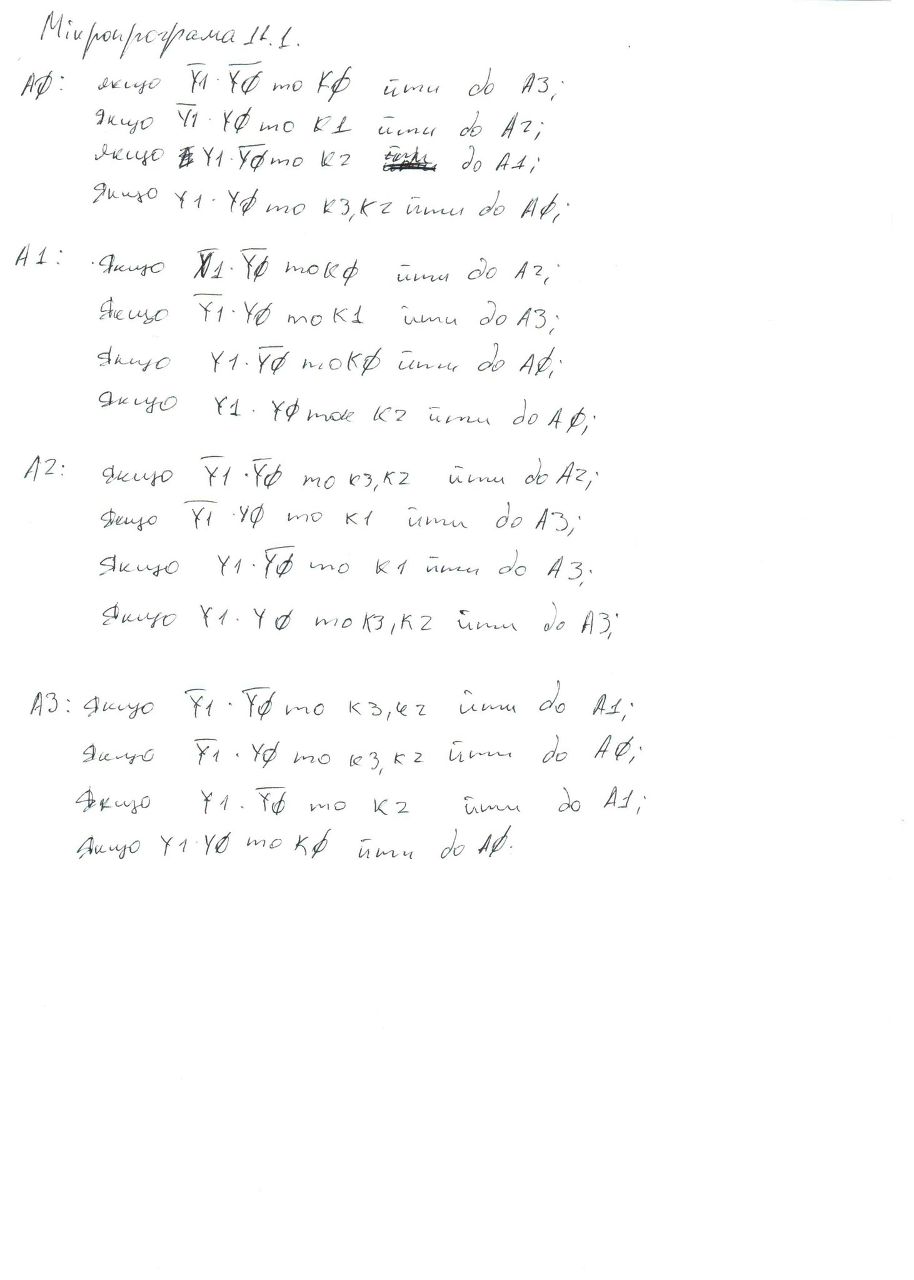 Мікропрограма 11.1.
Aφ: якщо Y̅1̅ · Y̅φ̅ то Kφ йти до A3;
Якщо Y̅1 · Yφ то K1 йти до A2;
якщо Y1 · Y̅φ̅ то K2 до A1;
Якщо Y1 · Yφ то K3,K2 йти до Aφ;
A1: Якщо Y̅1̅ · Y̅φ̅ то Kφ йти до A2;
Якщо Y̅1̅ · Yφ то K1 йти до A3;
Якщо Y1 · Y̅φ̅ то Kφ йти до Aφ;
Якщо Y1 · Yφ то K2 йти до Aφ;
A2: Якщо Y̅1̅ · Y̅φ то K3,K2 йти до A2;
Якщо Y̅1̅ · Yφ то K1 йти до A3;
Якщо Y1 · Y̅φ̅ то K1 йти до A3;
Якщо Y1 · Yφ то K3,K2 йти до A3;
A3: Якщо Y̅1 · Y̅φ̅ то K3,K2 йти до A1;
Якщо Y̅1 · Yφ то K3,K2 йти до Aφ;
Якщо Y1 · Y̅φ̅ то K2 йти до A1;
Якщо Y1 · Yφ то Kφ йти до Aφ.